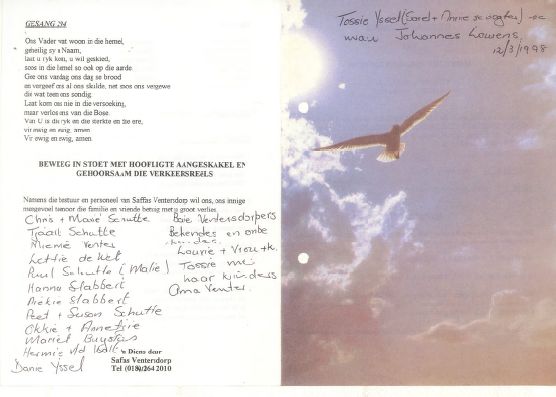 GESANG 294
Ons Vader wat woon in die hemel,
geheilig sy u Naam,
laat u ryk kom, u wil geskied,
soos in die hemel so ook op die aarde.
Gee ons vandag ons daaglikse brood
en vergeef ons al ons skulde, net soos ons vergewe
die wat teen ons sondig.
Laat kom ons nie in die versoeking,
maar verlos ons van die Bose.
Van U is die ryk en die sterkte en die ere,
vir ewig en ewig, amen.
Vir ewig en ewig, amen.
BEWEEG IN STOET MET HOOFLIGTE AANGESKAKEL EN
GEHOORSAAM DIE VERKEERSREËLS
Namens die bestuur en personeel van Saffas Ventersdorp wil ons, ons innige
meegevoel teenoor die familie en vriende betuig met u groot verlies
Chris + Marie Schutte
Tjaart Schutte
Miemie Venter
Lettie de Wet
Paul Schutte (Malie)
Hanna Slabbert
Piekie Slabbert
Peet + Susan Schutte
Okkie + Annetjie
Mariet Buys
Hermie v/d Walt
Danie Yssel
Baie Ventersdorpers
Bekendes en onbe
kendes.
Lourie + Vrou + k.
Tossie met
haar kinders
Ama Venter.
'n Diens deur
Saffas Ventersdorp
Tel (018) 264 2010
Tossie Yssel (Sarel + Annie se dogter) se
man Johannes Lowens.
12/3/1998